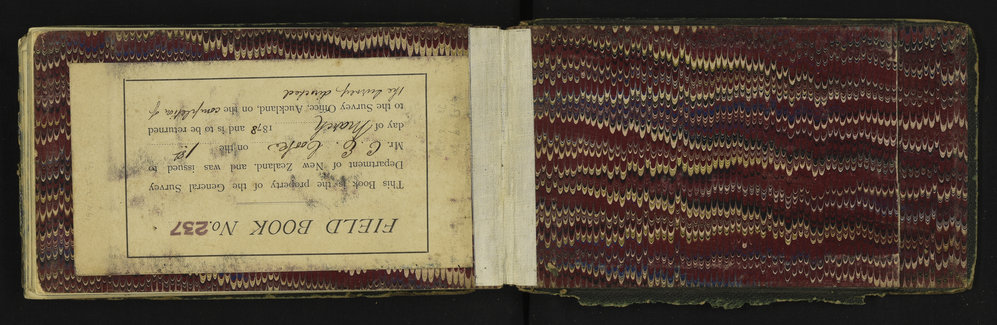 FIELD BOOK No. 237
This Book is the property of the General Survey
Department of New Zealand, and was issued to
Mr. C. E. Cooke on the 1st
day of March 1878 and is to be returned
to the Survey Office, Auckland, on the completion of
the survey directed